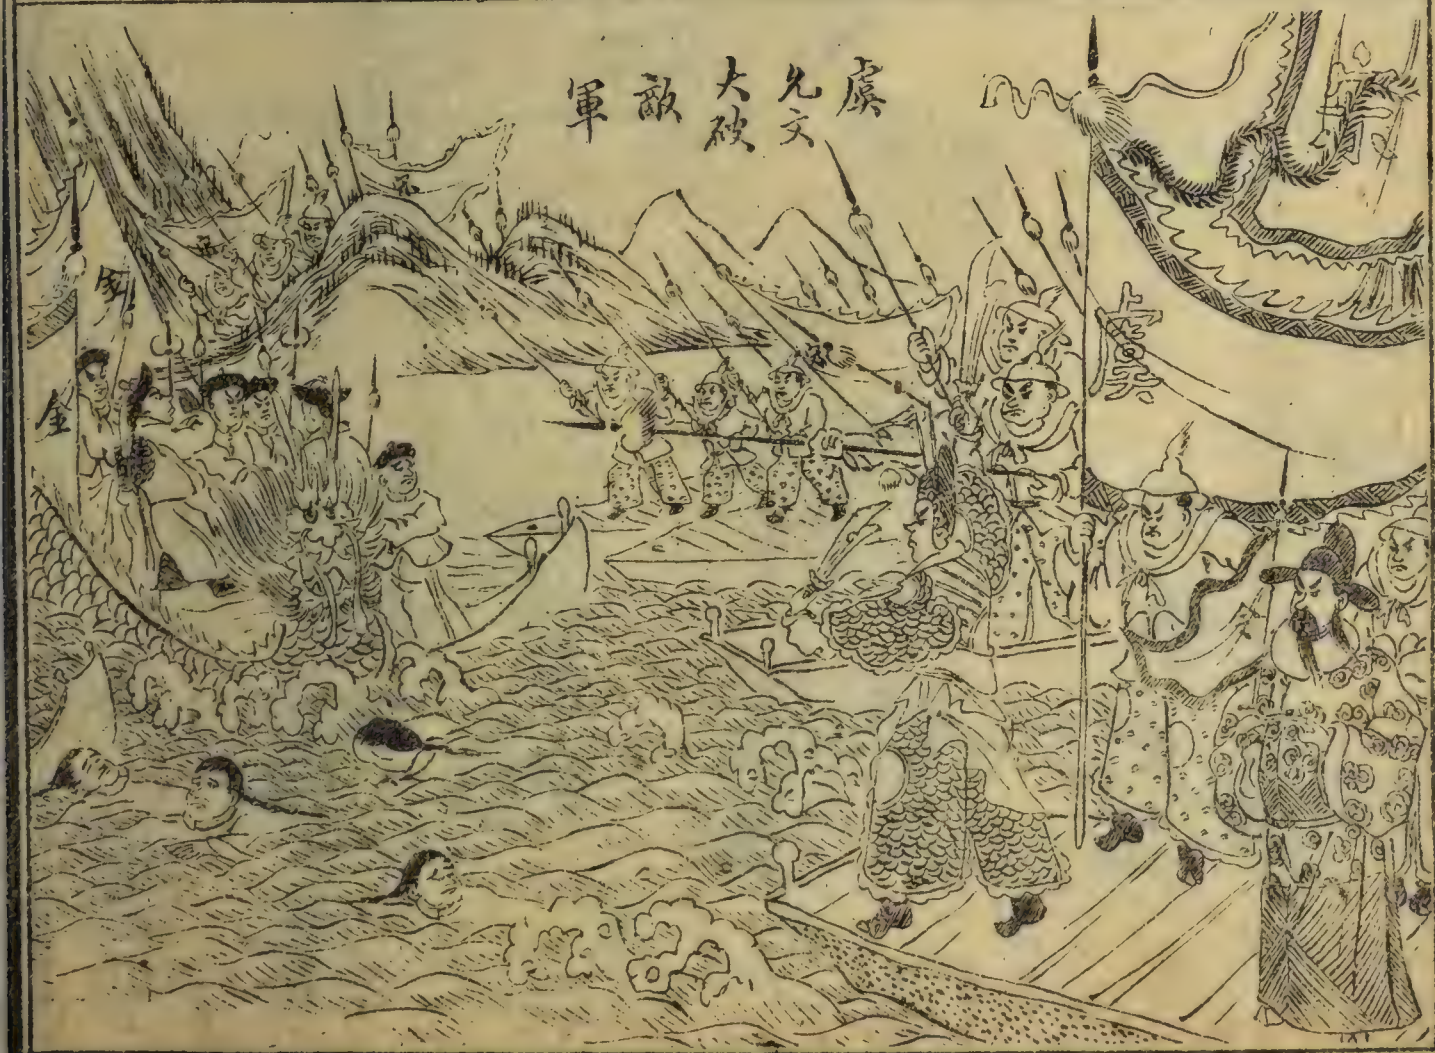 虞允文大破敵軍
虞
金